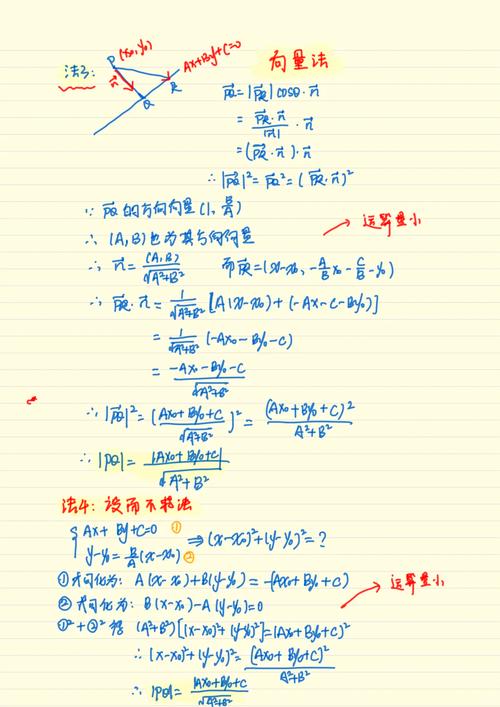 法3:
P(x₀,y₀)
Ax+By+C=0
n⃗
Q
R
向量法
PQ⃗=|PR⃗|cosθ·n⃗
=PR⃗·n⃗/|n⃗|·n⃗
=(PR⃗·n⃗)·n⃗
∴|PQ⃗|²=PQ⃗²=(PR⃗·n⃗)²
∵PQ的方向向量(1,B/A)
∴(A,B)也为其方向向量
→运算量小
∴n⃗=(A,B)/√A²+B² 而PR⃗=(x-x₀,-A/Bx₀-C/B-y₀)
∴PR⃗·n⃗=1/√A²+B²[A(x-x₀)+(-Ax-C-By₀)]
=1/√A²+B²(-Ax₀-By₀-C)
=-Ax₀-By₀-C/√A²+B²
∴|PQ⃗|²=[Ax₀+By₀+C/√A²+B²]²=(Ax₀+By₀+C)²/A²+B²
∴|PQ|=|Ax₀+By₀+C|/√A²+B²
法4:设而不求法
{Ax+By+C=0 ①
y-y₀=B/A(x-x₀) ②
⇒(x-x₀)²+(y-y₀)²=?
①式可化为:A(x-x₀)+B(y-y₀)=-(Ax₀+By₀+C)
②式可化为:B(x-x₀)-A(y-y₀)=0
→运算量小
①²+②²得(A²+B²)[(x-x₀)²+(y-y₀)²]=(Ax₀+By₀+C)²
∴(x-x₀)²+(y-y₀)²=(Ax₀+By₀+C)²/A²+B²
∴|PQ|=|Ax₀+By₀+C|/√A²+B²